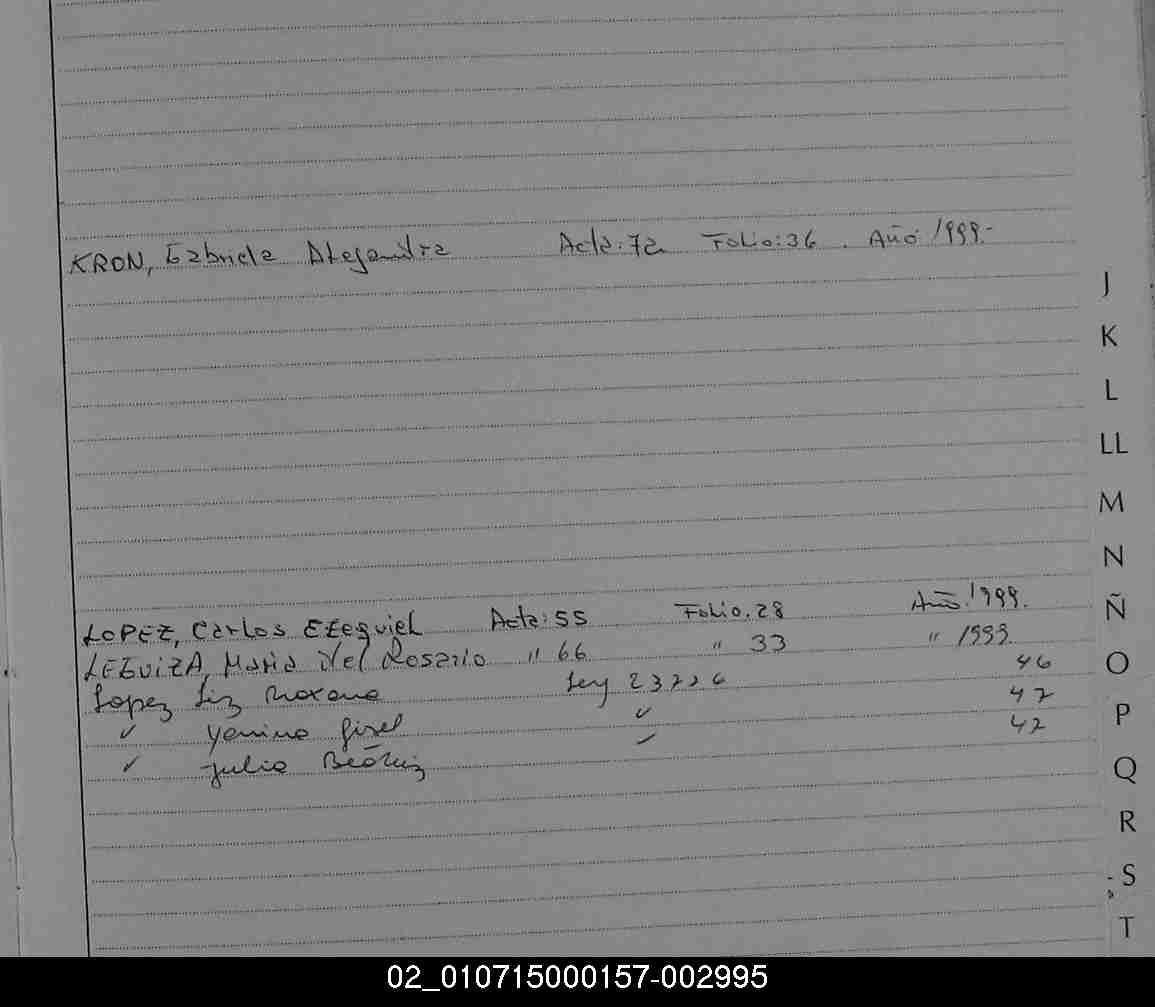 KRON, Gabriela Alejandra Acta: 72 Folio: 36. Año 1999.-
J
K
L
LL
M
N
LOPEZ, Carlos Ezequiel Acta: 55 Folio. 28 Año. 1999.
Ñ
LEGUIZA, Maria Del Rosario " 66 " 33 " 1999.
O
Lopez Liz Roxana Ley 23226 46
✓ Yanina Gisel ✓ 47
P
✓ Julia Beatriz ✓ 47
Q
R
S
T
02_010715000157-002995